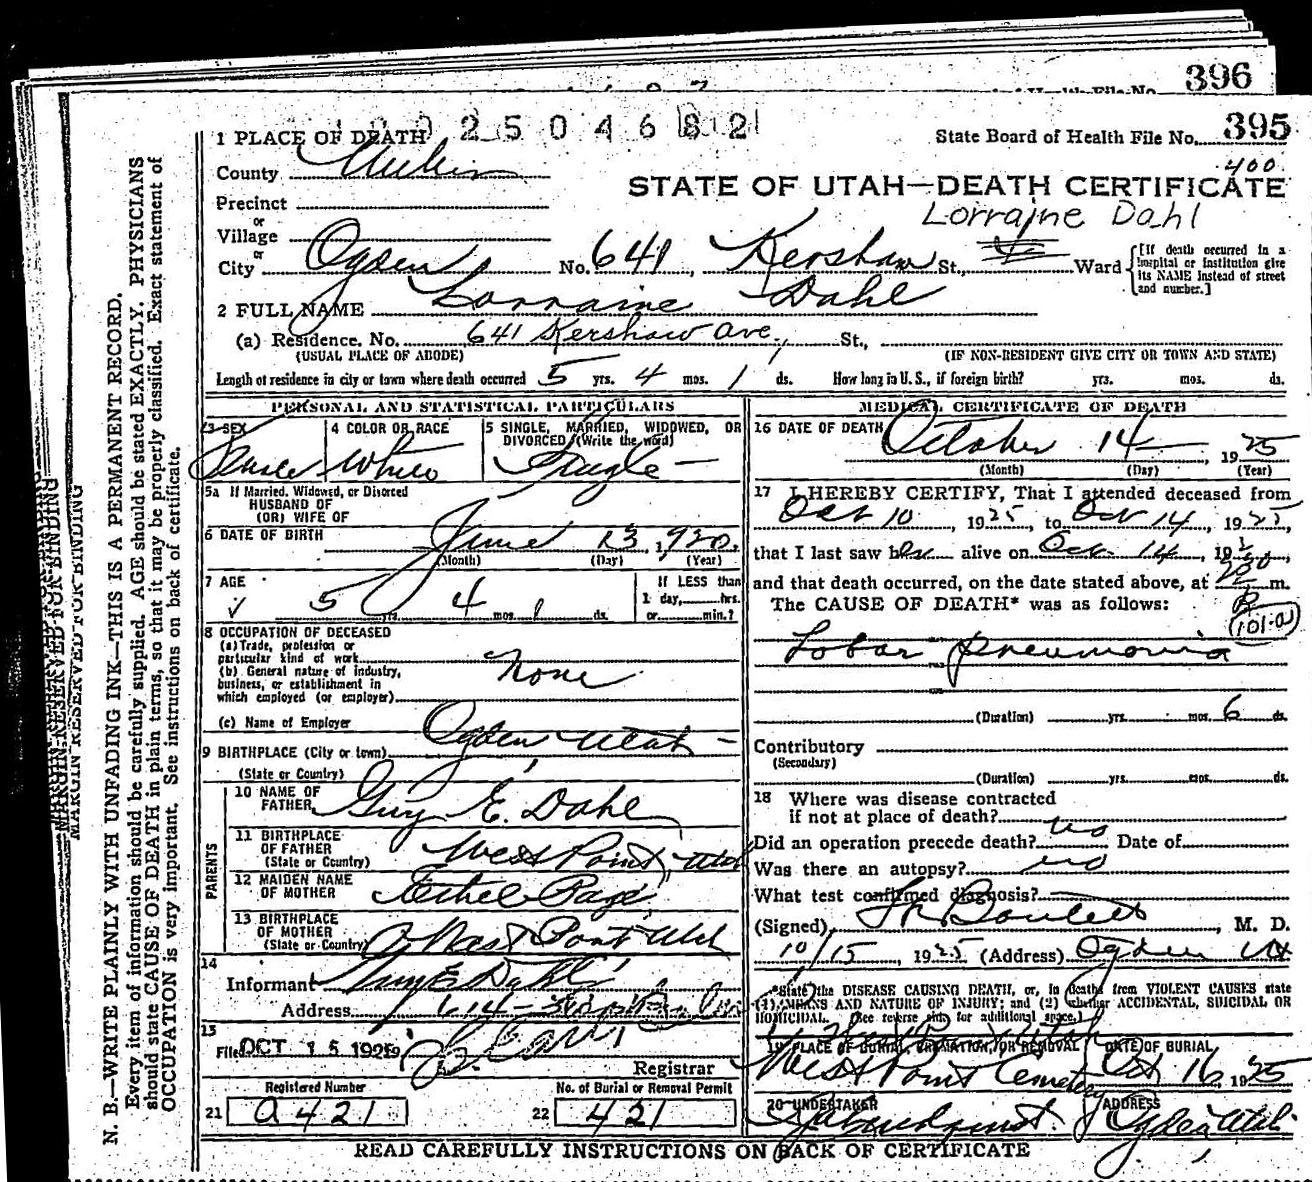 396
State Board of Health File No. 395
400
1 PLACE OF DEATH
2 5 0 4 6 8 2
STATE OF UTAH—DEATH CERTIFICATE
Lorraine Dahl
County
Precinct
or
Village
or
City Ogden No. 641, Kershaw St., Ward
[If death occurred in a hospital or institution give its NAME instead of street and number.]
2 FULL NAME Lorraine Dahl
(a) Residence. No. 641 Kershaw ave., St.,
(USUAL PLACE OF ABODE) (IF NON-RESIDENT GIVE CITY OR TOWN AND STATE)
Length of residence in city or town where death occurred 5 yrs. 4 mos. 1 ds. How long in U. S., if foreign birth? yrs. mos. ds.
PERSONAL AND STATISTICAL PARTICULARS
3 SEX 4 COLOR OR RACE 5 SINGLE, MARRIED, WIDOWED, OR DIVORCED (Write the word)
White Single —
5a If Married, Widowed, or Divorced
HUSBAND OF
(OR) WIFE OF
6 DATE OF BIRTH June 13, 1920.
(Month) (Day) (Year)
7 AGE 5 yrs. 4 mos. 1 ds.
If LESS than
1 day, hrs.
or min.?
8 OCCUPATION OF DECEASED
(a) Trade, profession or
particular kind of work
(b) General nature of industry,
business, or establishment in
which employed (or employer)
None
(c) Name of Employer
9 BIRTHPLACE (City or town) Ogden Utah —
(State or Country)
PARENTS
10 NAME OF FATHER Guy E. Dahl
11 BIRTHPLACE OF FATHER (State or Country) West Point, Utah
12 MAIDEN NAME OF MOTHER Ethel Page
13 BIRTHPLACE OF MOTHER (State or Country) West Point Utah
14
Informant Guy E Dahl
Address
15
Filed OCT 15 1925
Registrar
Registered Number
21 a421
No. of Burial or Removal Permit
22 421
MEDICAL CERTIFICATE OF DEATH
16 DATE OF DEATH October 14 1925
(Month) (Day) (Year)
17 I HEREBY CERTIFY, That I attended deceased from
Oct 10, 1925, to Oct 14, 1925,
that I last saw her alive on Oct. 14, 192
and that death occurred, on the date stated above, at m.
The CAUSE OF DEATH* was as follows:
(101-a)
Lobar Pneumonia
(Duration) yrs. mos. 6 ds.
Contributory
(Secondary)
(Duration) yrs. mos. ds.
18 Where was disease contracted
if not at place of death?
Did an operation precede death? no Date of
Was there an autopsy? no
What test confirmed diagnosis?
(Signed), M. D.
10/15, 1925 (Address) Ogden Ut
*State the DISEASE CAUSING DEATH, or, in deaths from VIOLENT CAUSES state
(1) MEANS AND NATURE OF INJURY; and (2) whether ACCIDENTAL, SUICIDAL OR
HOMICIDAL. (See reverse side for additional space.)
19 PLACE OF BURIAL, CREMATION, OR REMOVAL DATE OF BURIAL
West Point Cemetery Oct 16, 1925
20 UNDERTAKER ADDRESS
Ogden, Utah.
READ CAREFULLY INSTRUCTIONS ON BACK OF CERTIFICATE
MARGIN RESERVED FOR BINDING
N. B.—WRITE PLAINLY WITH UNFADING INK—THIS IS A PERMANENT RECORD.
Every item of information should be carefully supplied. AGE should be stated EXACTLY. PHYSICIANS
should state CAUSE OF DEATH in plain terms, so that it may be properly classified. Exact statement of
OCCUPATION is very important. See instructions on back of certificate.